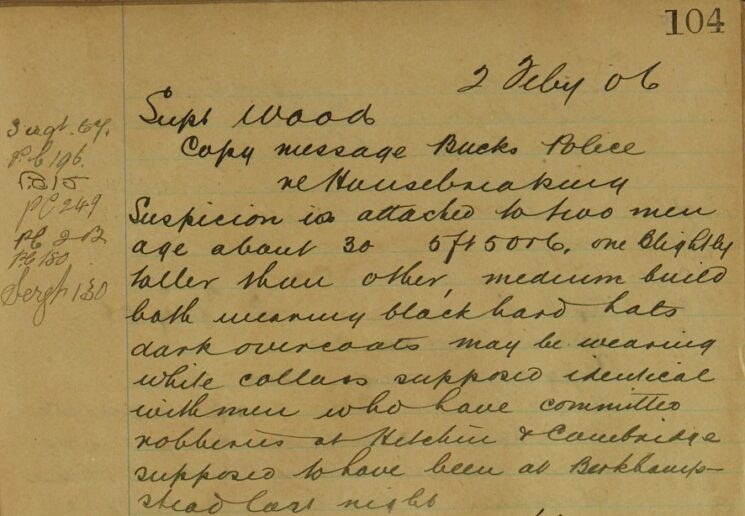 104
2 Feby 06
Supt Wood
Copy message Bucks Police
re Housebreaking
Suspicion is attached to two men
age about 30 5ft 5 or 6, one slightly
taller than other, medium build
both wearing black hard hats
dark overcoats may be wearing
white collars supposed identical
with men who have committed
robberies at Hitchin & Cambridge
supposed to have been at Berkhamp-
stead last night
Sergt. 67.
PC 196.
PC 15
PC 249
PC 202
PC 150
Sergt 130